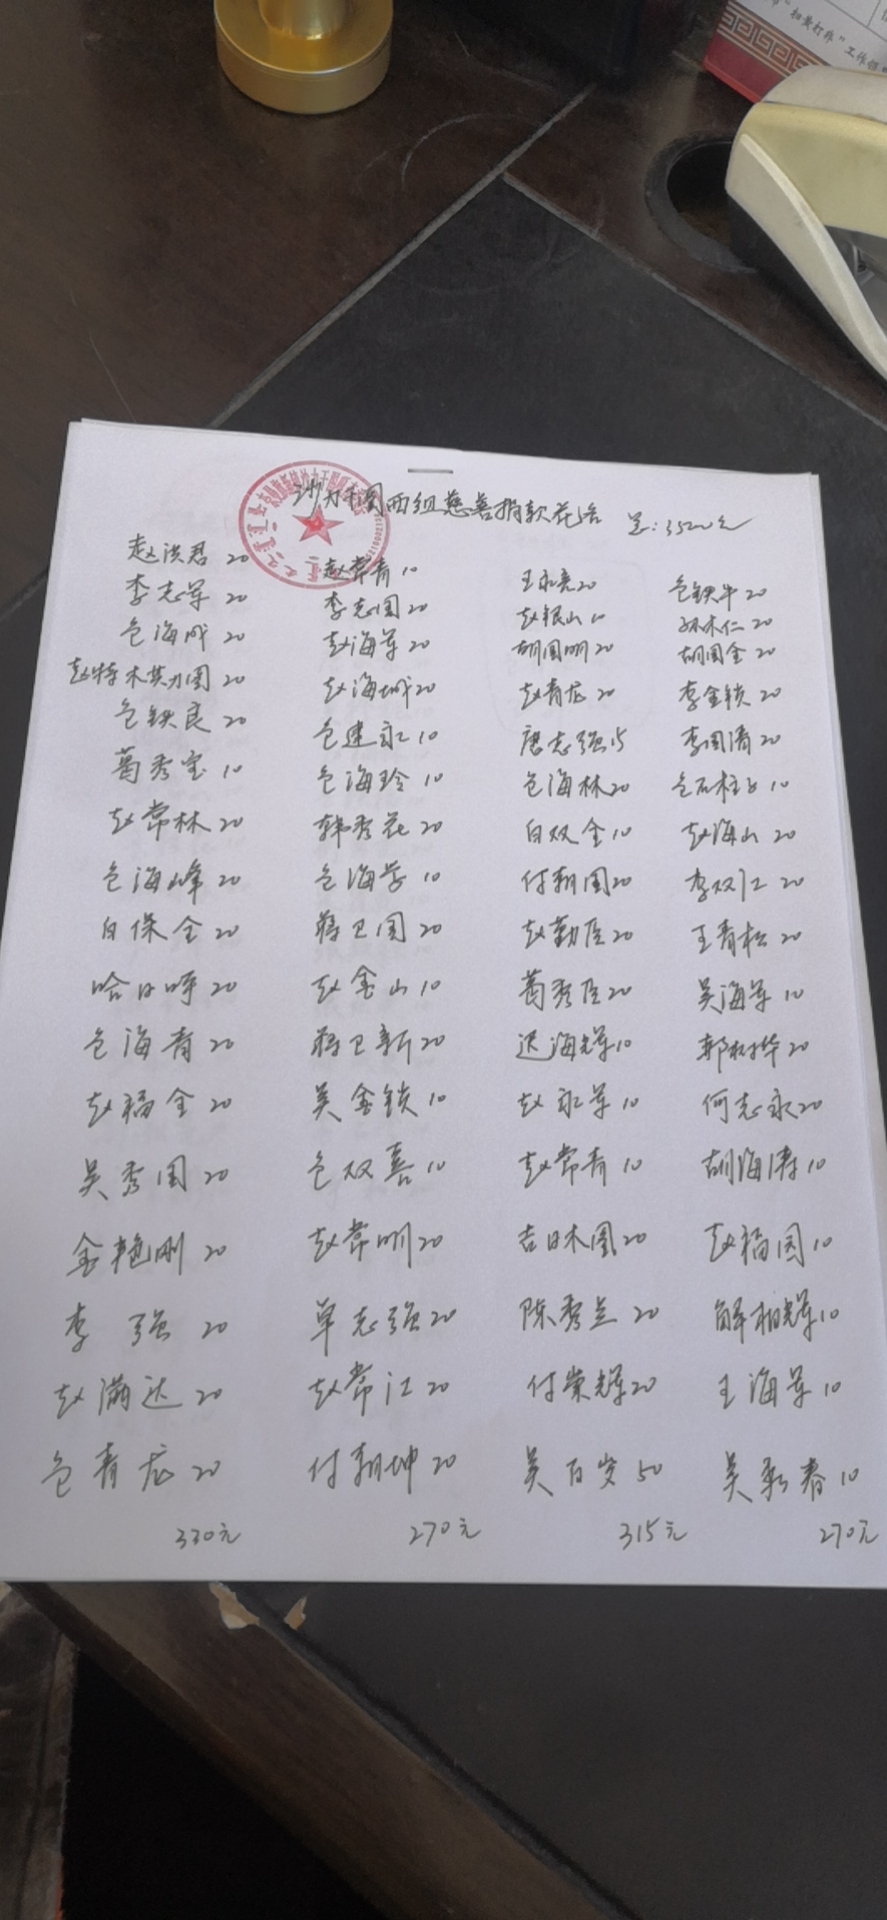 "扫黄打非"工作领
沙力干图西组慈善捐款花名 足:3520元
赵洪君 20 赵常青 10 王永亮 20 包铁牛 20
李志军 20 李志国 20 赵银山 10 孙木仁 20
包海成 20 赵海军 20 胡国明 20 胡国金 20
赵特木其力图 20 赵海城 20 赵青龙 20 李金锁 20
包铁良 20 包建永 10 唐志强 15 李国清 20
葛秀宝 10 包海玲 10 包海林 20 包石柱子 10
赵常林 20 韩秀花 20 白双全 10 赵海山 20
包海峰 20 包海学 10 付朝国 20 李双江 20
白保全 20 蒋卫国 20 赵勤臣 20 王青松 20
哈日呼 20 赵金山 10 葛秀臣 20 吴海军 10
包海青 20 蒋卫新 20 迟海辉 10 郭树华 20
赵福全 20 吴金锁 10 赵永军 10 何志永 20
吴秀国 20 包双喜 10 赵常青 10 胡海涛 10
金艳刚 20 赵常明 20 吉日木图 20 赵福国 10
李强 20 单志强 20 陈秀兰 20 解相辉 10
赵满达 20 赵常江 20 付崇辉 20 王海军 10
包青龙 20 付朝坤 20 吴百岁 50 吴彩春 10
330元 270元 315元 270元